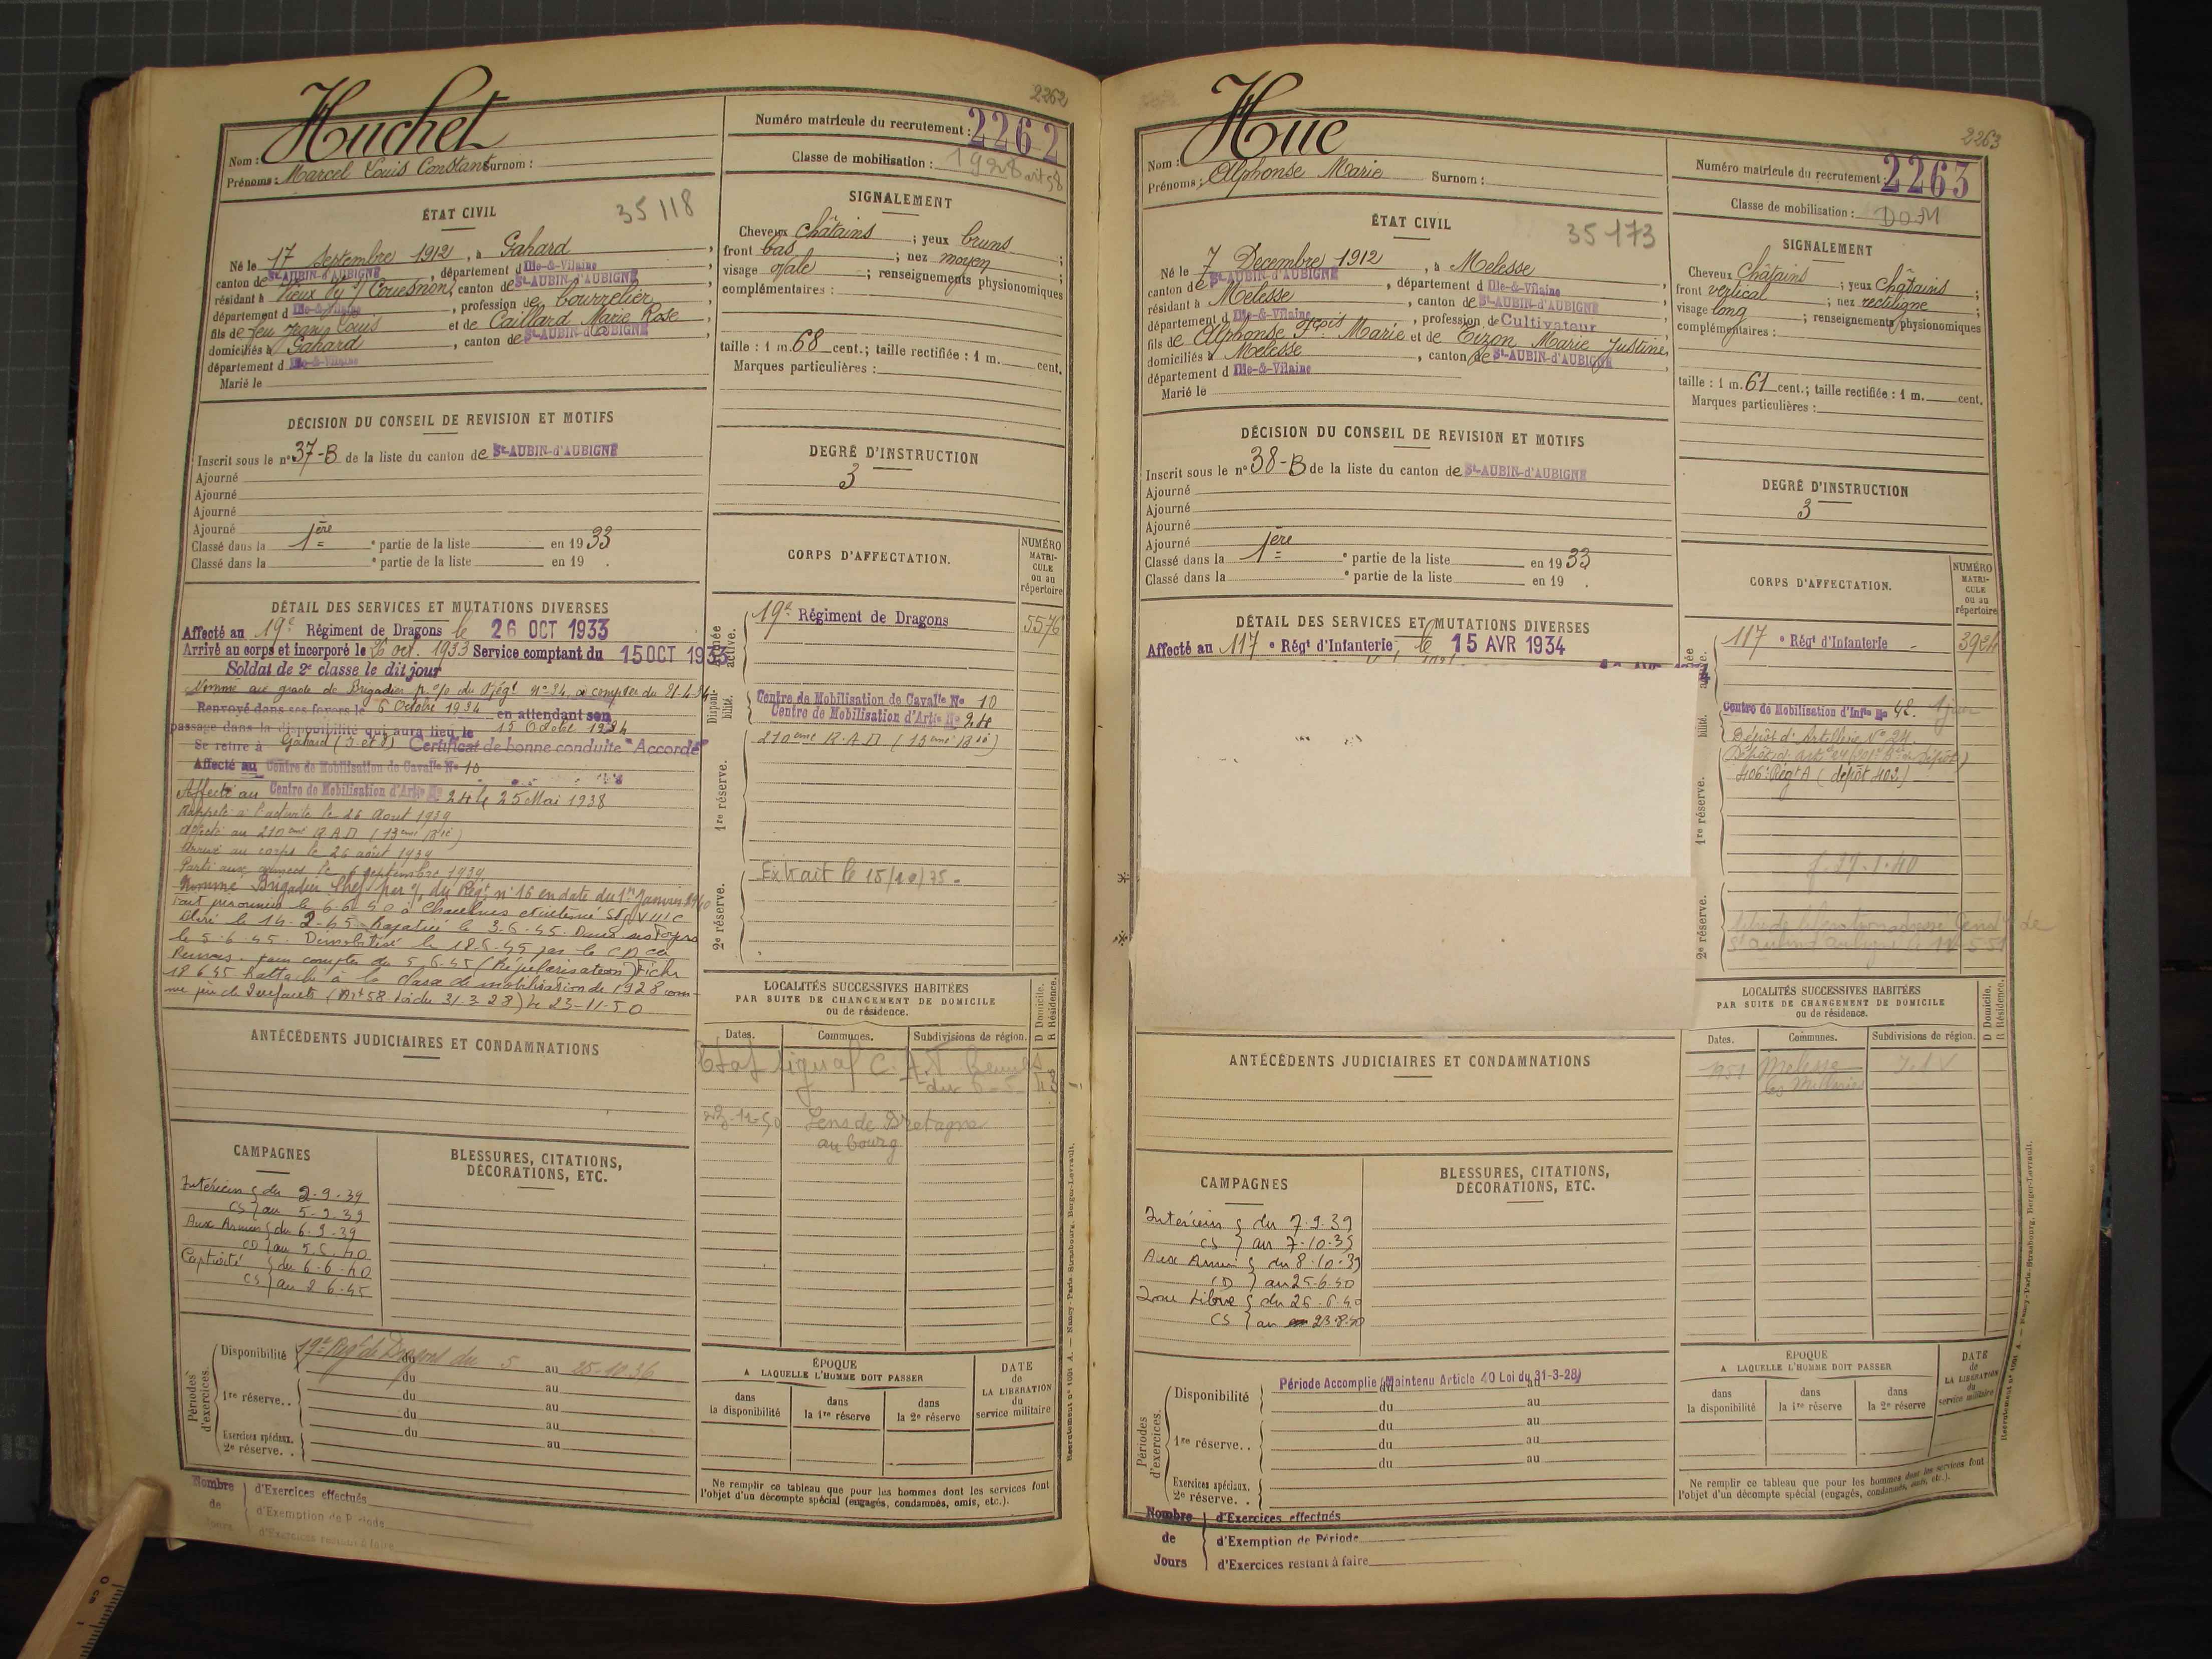 2262
Nom : Huchet
Prénoms : Marcel Louis Constant Surnom :
Numéro matricule du recrutement : 2262
Classe de mobilisation : 1928 art 58
ÉTAT CIVIL 35118
Né le 17 Septembre 1912, à Gahard,
canton de St-AUBIN-d'AUBIGNÉ, département d Ille-&-Vilaine,
résidant à Vieux Vy s/ Couesnon, canton de St-AUBIN-d'AUBIGNÉ,
département d Ille-&-Vilaine, profession de bourrelier,
fils de feu Francis Louis et de Caillard Marie Rose,
domiciliés à Gahard, canton de St-AUBIN-d'AUBIGNÉ,
département d Ille-&-Vilaine
Marié le
SIGNALEMENT
Cheveux châtains ; yeux bruns ;
front bas ; nez moyen ;
visage ovale ; renseignements physionomiques
complémentaires :
taille : 1 m. 68 cent.; taille rectifiée : 1 m. cent.
Marques particulières :
DÉCISION DU CONSEIL DE REVISION ET MOTIFS
Inscrit sous le n° 37-B de la liste du canton de St-AUBIN-d'AUBIGNÉ
Ajourné
Ajourné
Ajourné
Ajourné
Classé dans la 1ère e partie de la liste en 1933
Classé dans la e partie de la liste en 19 .
DEGRÉ D'INSTRUCTION
3
DÉTAIL DES SERVICES ET MUTATIONS DIVERSES
Affecté au 19e Régiment de Dragons le 26 OCT 1933
Arrivé au corps et incorporé le 26 oct. 1933 Service comptant du 15 OCT 1933
Soldat de 2e classe le dit jour
Nommé au grade de Brigadier p. o/o du Régt n° 24 à compter du 21.4.34
Renvoyé dans ses foyers le 6 Octobre 1934 en attendant son
passage dans la disponibilité qui aura lieu le 15 Octobre 1934
Se retire à Gahard (I et V) Certificat de bonne conduite "Accordé"
Affecté au Centre de Mobilisation de Cavalie No 10
Affecté au Centre de Mobilisation d'Artie No 24 le 25 Mai 1938
Rappelé à l'activité le 26 Aout 1939
Affecté au 210ème R.A.D (13ème Bie)
Arrivé au corps le 26 août 1939
Parti aux armées le 6 septembre 1939
Nommé Brigadier Chef par o/ du Régt n° 16 en date du 1er Janvier 1940
Fait prisonnier le 6.6.40 à Chaulnes et interné St. VIII C
Libéré le 14-2-45 Rapatrié le 3-6-45. Dans ses Foyers
le 5-6-45. Démobilisé le 18-6-45 par le CD ca
Rennes. pour compter du 5.6.45 (Régularisation) Fiche
18 6 45 Rattaché à la classe de mobilisation de 1928 com-
me père de 2 enfants (Art 58. Loi du 31.3.28) le 23-11-50
CORPS D'AFFECTATION.
NUMÉRO MATRI-CULE ou au répertoire
Armée active.
19e Régiment de Dragons 5576
Disponi-bilité.
Centre de Mobilisation de Cavalie No 10
Centre de Mobilisation d'Artie No 24
210ème R.A.D (13ème Bie)
1re réserve.
Extrait le 15/10/75.
2e réserve.
ANTÉCÉDENTS JUDICIAIRES ET CONDAMNATIONS
LOCALITÉS SUCCESSIVES HABITÉES
PAR SUITE DE CHANGEMENT DE DOMICILE
ou de résidence.
D Domicile. R Résidence.
Dates. Communes. Subdivisions de région.
Etat signal C.A.T. Rennes
23-11-50 Sens de Bretagne
au bourg
CAMPAGNES
Intérieur { du 2-9-39
CS } au 5-9-39
Aux Armées { du 6-9-39
CD } au 5.6.40
Captivité { du 6-6-40
CS } au 2 6-45
BLESSURES, CITATIONS,
DÉCORATIONS, ETC.
Périodes d'exercices.
Disponibilité 19e Régt de Dragons du 5 au 25-10-36
du au
1re réserve.. du au
du au
du au
Exercices spéciaux.
2e réserve. . au
ÉPOQUE
A LAQUELLE L'HOMME DOIT PASSER
dans la disponibilité
dans la 1re réserve
dans la 2e réserve
DATE de LA LIBÉRATION du service militaire
Ne remplir ce tableau que pour les hommes dont les services font
l'objet d'un décompte spécial (engagés, condamnés, omis, etc.).
Nombre de Jours
d'Exercices effectués
d'Exemption de Période
d'Exercices restant à faire
Recrutement n° 1001 A. — Nancy-Paris-Strasbourg, Berger-Levrault.
2263
Nom : Hue
Prénoms : Alphonse Marie Surnom :
Numéro matricule du recrutement : 2263
Classe de mobilisation : DOM
ÉTAT CIVIL 35173
Né le 7 Decembre 1912, à Melesse
canton de St-AUBIN-d'AUBIGNÉ, département d Ille-&-Vilaine
résidant à Melesse, canton de St-AUBIN-d'AUBIGNÉ
département d Ille-&-Vilaine, profession de Cultivateur
fils de Alphonse Fçois Marie et de Tizon Marie Justine,
domiciliés à Melesse, canton de St-AUBIN-d'AUBIGNÉ
département d Ille-&-Vilaine
Marié le
SIGNALEMENT
Cheveux Châtains ; yeux Châtains ;
front vertical ; nez rectiligne ;
visage long ; renseignements physionomiques
complémentaires :
taille : 1 m. 61 cent.; taille rectifiée : 1 m. cent.
Marques particulières :
DÉCISION DU CONSEIL DE REVISION ET MOTIFS
Inscrit sous le n° 38-B de la liste du canton de St-AUBIN-d'AUBIGNÉ
Ajourné
Ajourné
Ajourné
Ajourné
Classé dans la 1ère e partie de la liste en 1933
Classé dans la e partie de la liste en 19 .
DEGRÉ D'INSTRUCTION
3
DÉTAIL DES SERVICES ET MUTATIONS DIVERSES
Affecté au 117 e Régt d'Infanterie le 15 AVR 1934
CORPS D'AFFECTATION.
NUMÉRO MATRI-CULE ou au répertoire
117 e Régt d'Infanterie 3924
bilité.
Centre de Mobilisation d'Infie No 42
Dépôt d'Artillerie No 24
406e Régt A (dépôt 402)
1re réserve.
27-1-40
2e réserve.
ANTÉCÉDENTS JUDICIAIRES ET CONDAMNATIONS
LOCALITÉS SUCCESSIVES HABITÉES
PAR SUITE DE CHANGEMENT DE DOMICILE
ou de résidence.
D Domicile. R Résidence.
Dates. Communes. Subdivisions de région.
1951 Melesse I et V
CAMPAGNES
Intérieur { du 7.9.39
CS } au 7-10-39
Aux Armées { du 8-10-39
CD } au 25-6-40
Zone Libre { du 26.6.40
CS } au 23.8.40
BLESSURES, CITATIONS,
DÉCORATIONS, ETC.
Périodes d'exercices.
Disponibilité Période Accomplie (Maintenu Article 40 Loi du 31-3-28)
du au
du au
1re réserve.. du au
du au
du au
Exercices spéciaux.
2e réserve. .
ÉPOQUE
A LAQUELLE L'HOMME DOIT PASSER
dans la disponibilité
dans la 1re réserve
dans la 2e réserve
DATE de LA LIBÉRATION du service militaire
Ne remplir ce tableau que pour les hommes dont les services font
l'objet d'un décompte spécial (engagés, condamnés, omis, etc.).
Nombre de Jours
d'Exercices effectués
d'Exemption de Période
d'Exercices restant à faire
Recrutement n° 1001 A. — Nancy-Paris-Strasbourg, Berger-Levrault.